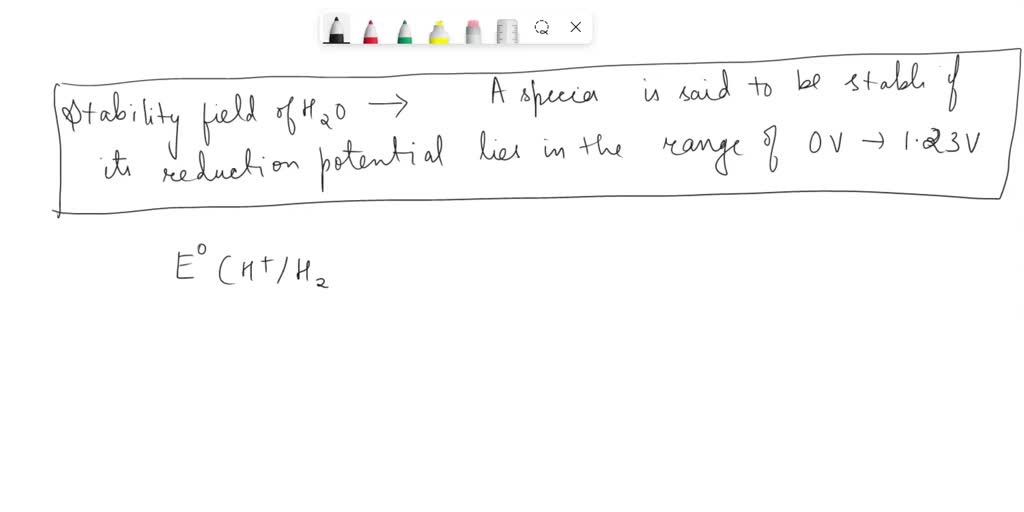 Stability field of H₂O → A species is said to be stable if
its reduction potential lies in the range of 0V → 1.23V
E⁰ (H⁺/H₂